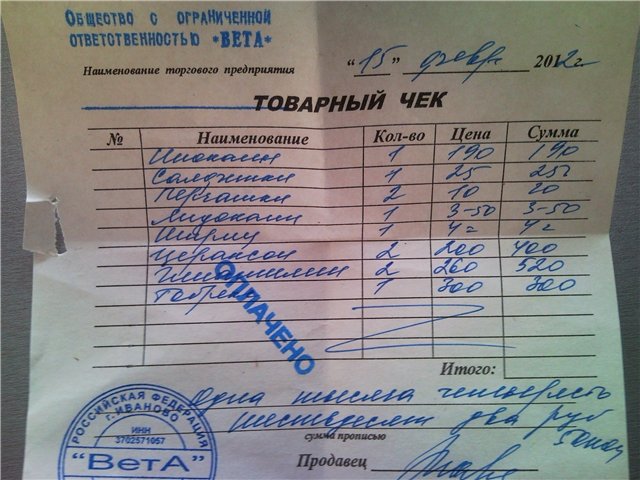 Общество с ограниченной
ответственностью "ВЕТА"
"15" февр. 2012 г.
Наименование торгового предприятия
ТОВАРНЫЙ ЧЕК
№ Наименование Кол-во Цена Сумма
1 190 190
Салфетки 1 25 25
Перчатки 2 10 20
Лидокаин 1 3-50 3-50
Шприц 1 4= 4=
Цераксон 2 200 400
2 260 520
Тобрекс 1 300 300
ОПЛАЧЕНО
Итого:
Одна тысяча четыреста
шестьдесят два руб
50 коп
сумма прописью
Продавец
РОССИЙСКАЯ ФЕДЕРАЦИЯ
г. ИВАНОВО
ИНН
3702571057
"ВетА"